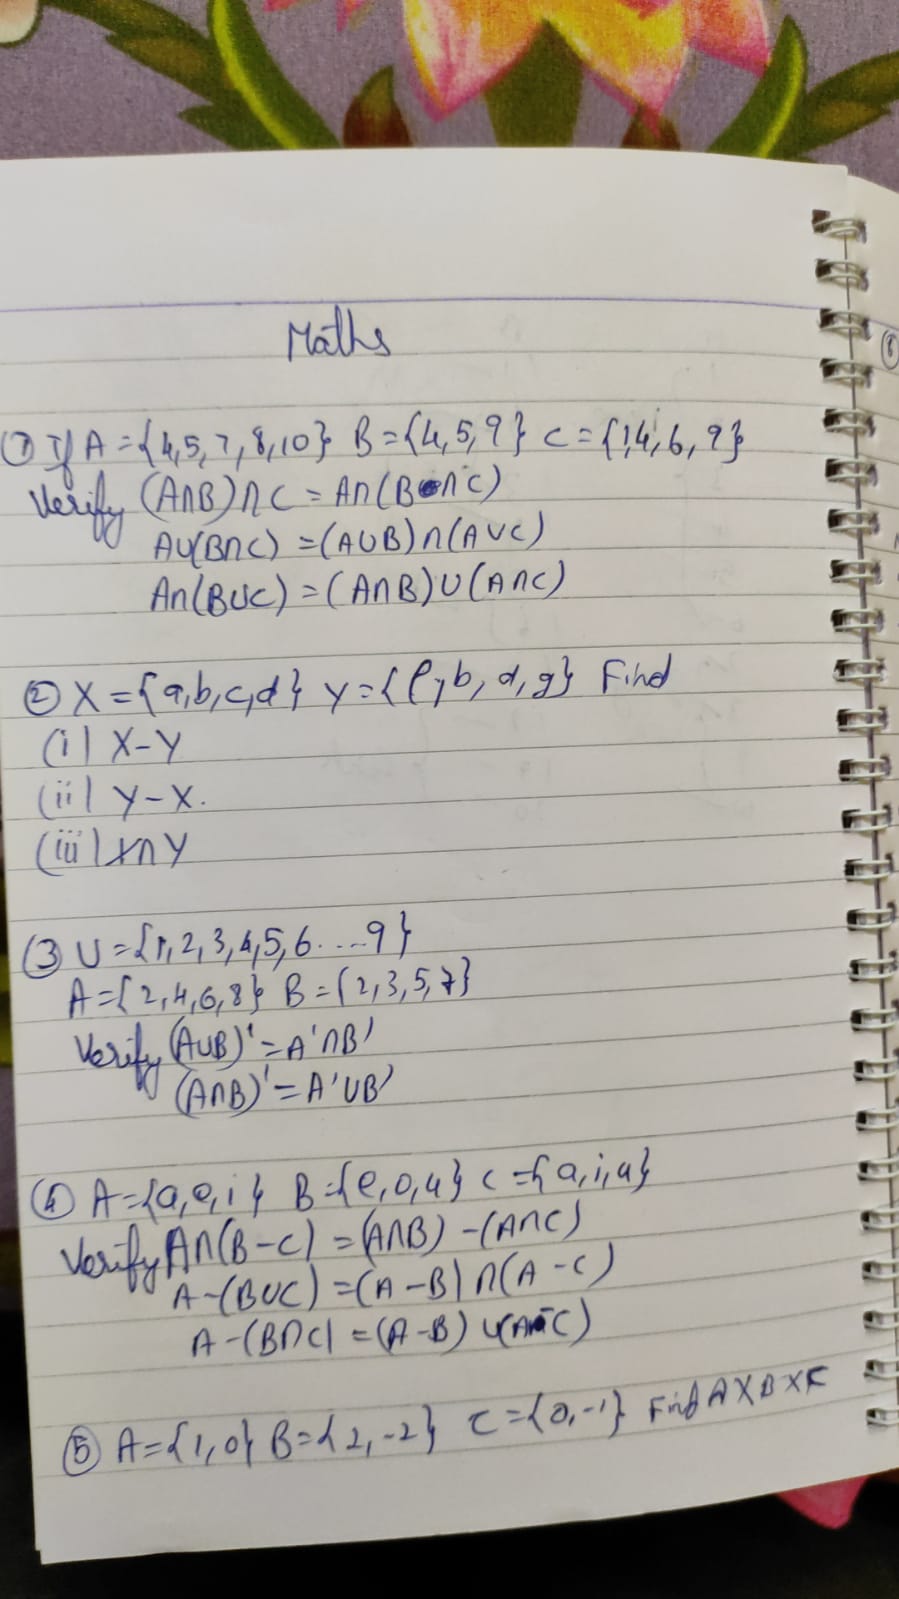 Maths
① If A = {4,5,7,8,10} B = {4,5,9} C = {1,4,6,9}
Verify (A∩B)∩C = A∩(B∩C)
A∪(B∩C) = (A∪B)∩(A∪C)
A∩(B∪C) = (A∩B)∪(A∩C)
② X = {a,b,c,d} Y = {f,b,d,g} Find
(i) X-Y
(ii) Y-X.
(iii) X∩Y
③ U = {1,2,3,4,5,6....9}
A = {2,4,6,8} B = {2,3,5,7}
Verify (A∪B)' = A'∩B'
(A∩B)' = A'∪B'
④ A = {a,e,i} B = {e,o,u} C = {a,i,u}
Verify A∩(B-C) = (A∩B) - (A∩C)
A-(B∪C) = (A-B)∩(A-C)
A-(B∩C) = (A-B)∪(A-C)
⑤ A = {1,0} B = {2,-2} C = {0,-1} Find A×B×C
⑧